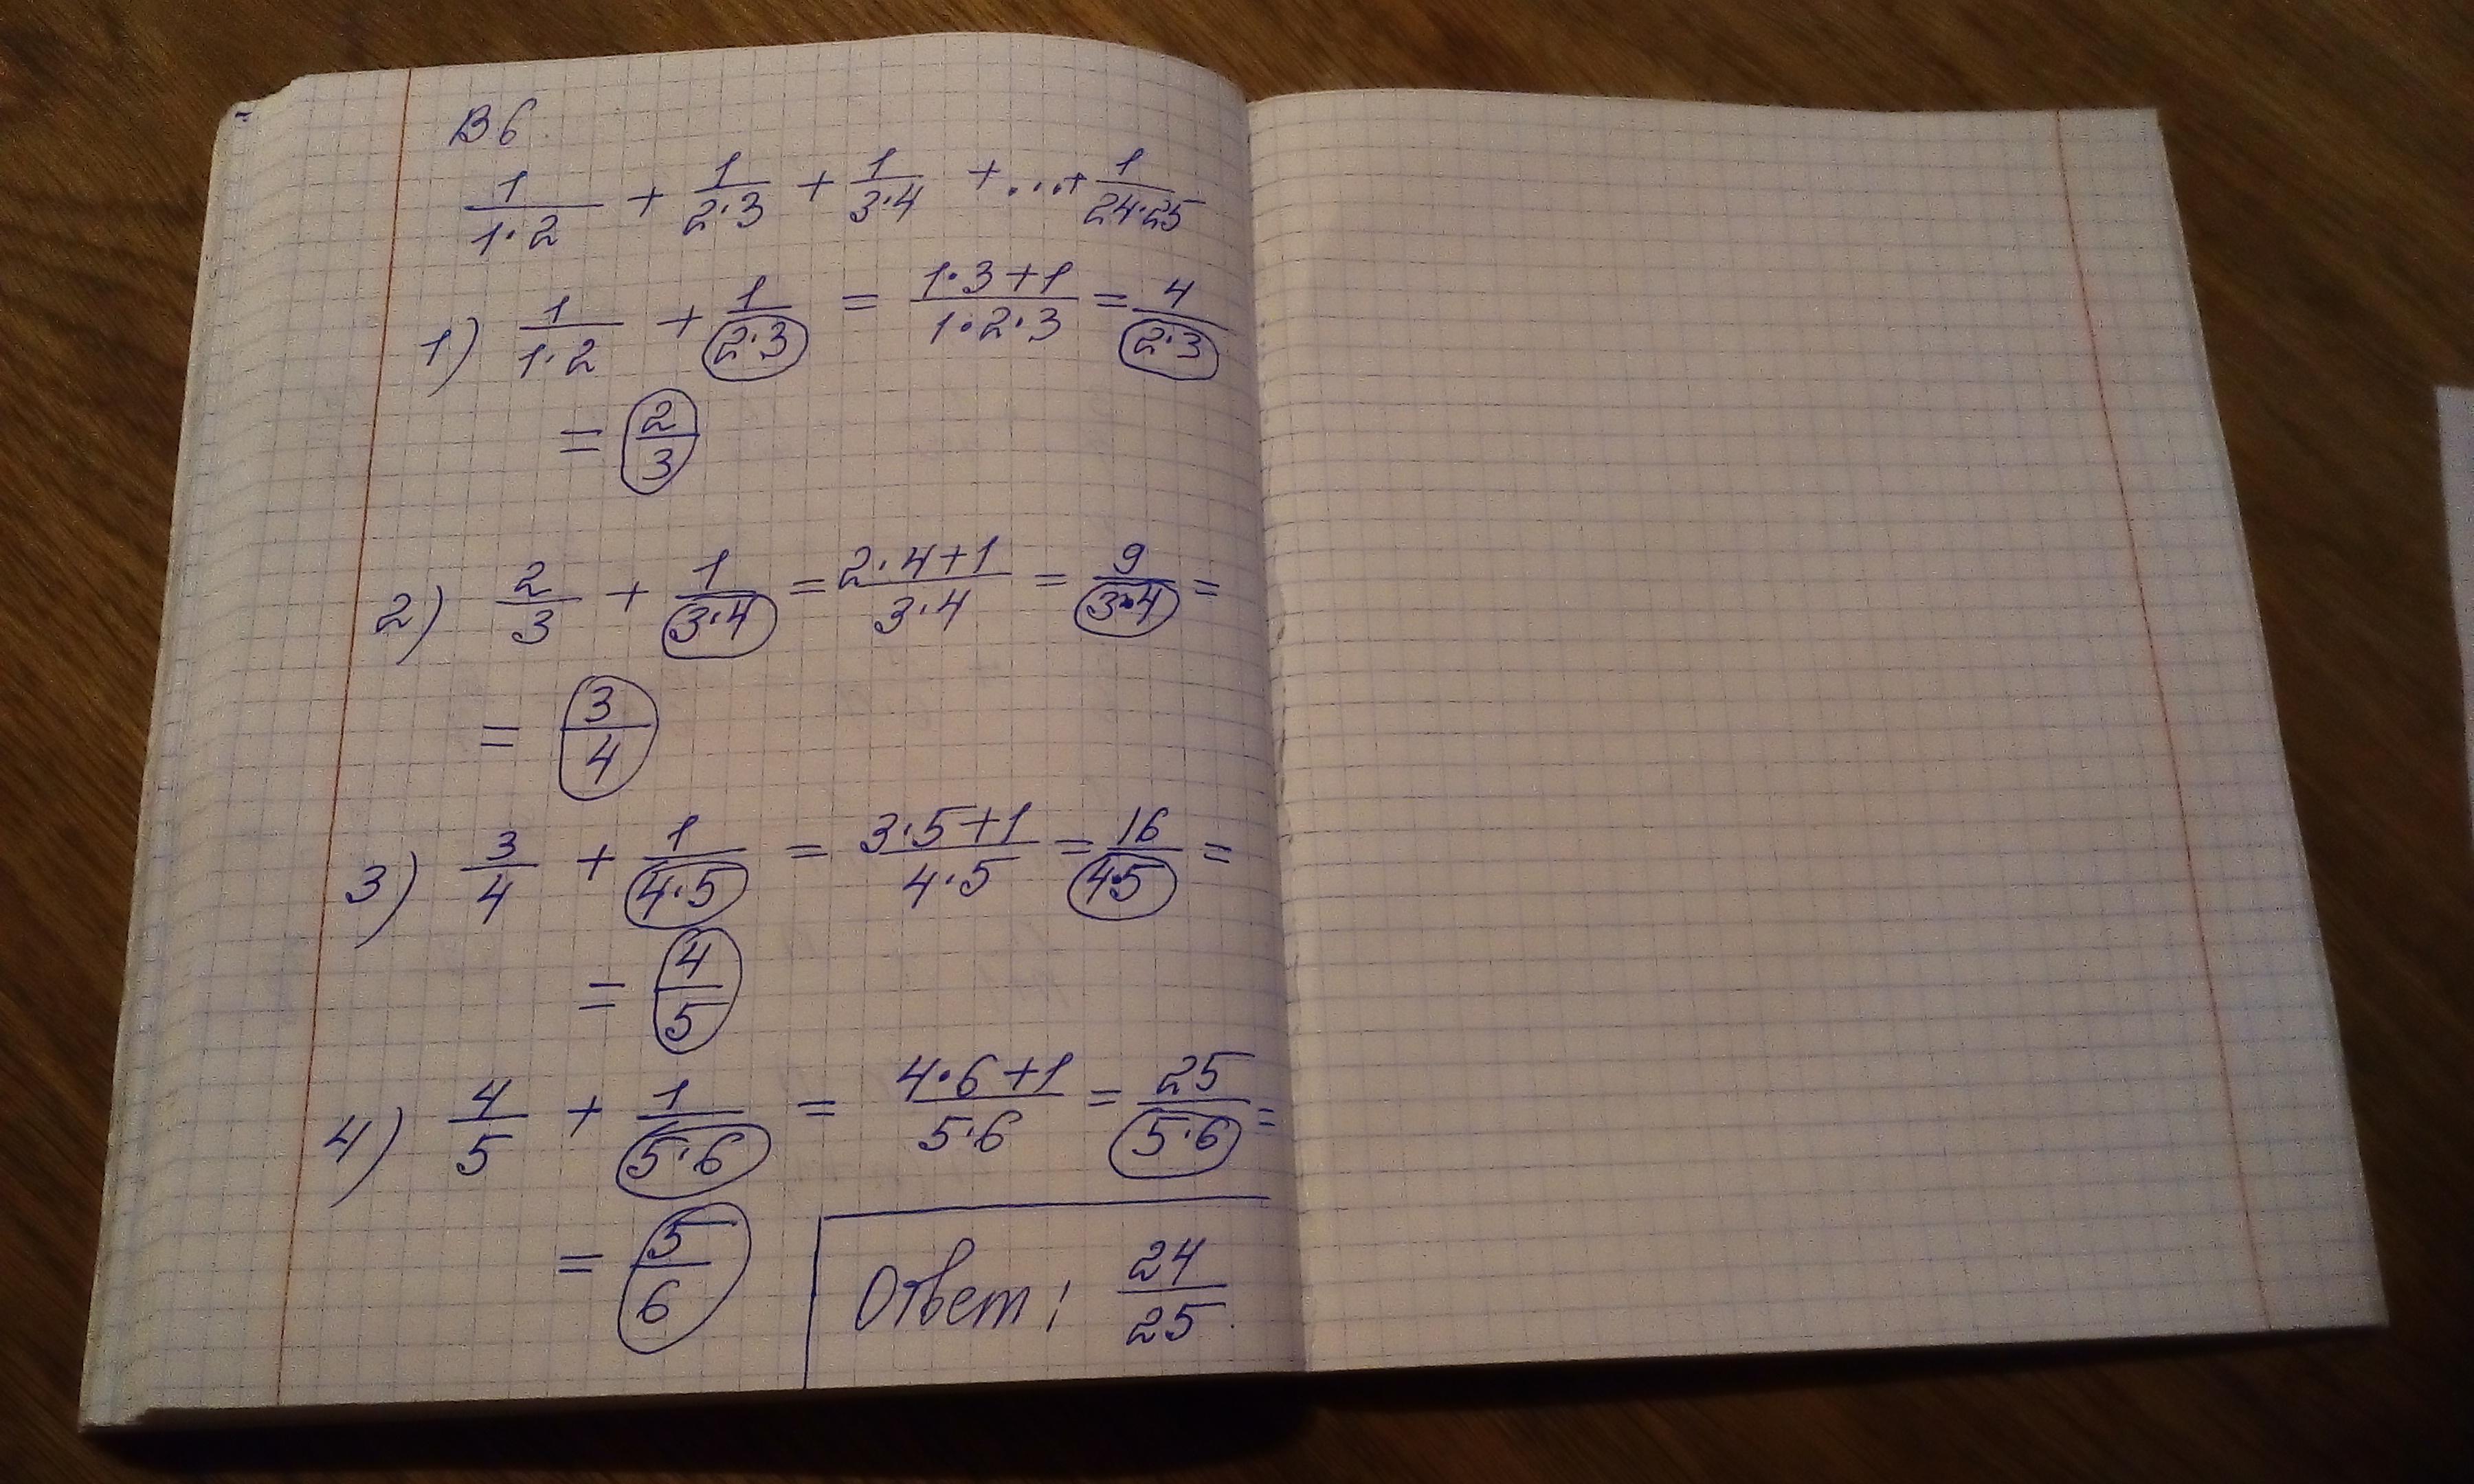 В6.
1/(1·2) + 1/(2·3) + 1/(3·4) + ...+ 1/(24·25)
1) 1/(1·2) + 1/(2·3) = (1·3+1)/(1·2·3) = 4/(2·3)
= 2/3
2) 2/3 + 1/(3·4) = (2·4+1)/(3·4) = 9/(3·4) =
= 3/4
3) 3/4 + 1/(4·5) = (3·5+1)/(4·5) = 16/(4·5) =
= 4/5
4) 4/5 + 1/(5·6) = (4·6+1)/(5·6) = 25/(5·6) =
= 5/6
Ответ: 24/25.